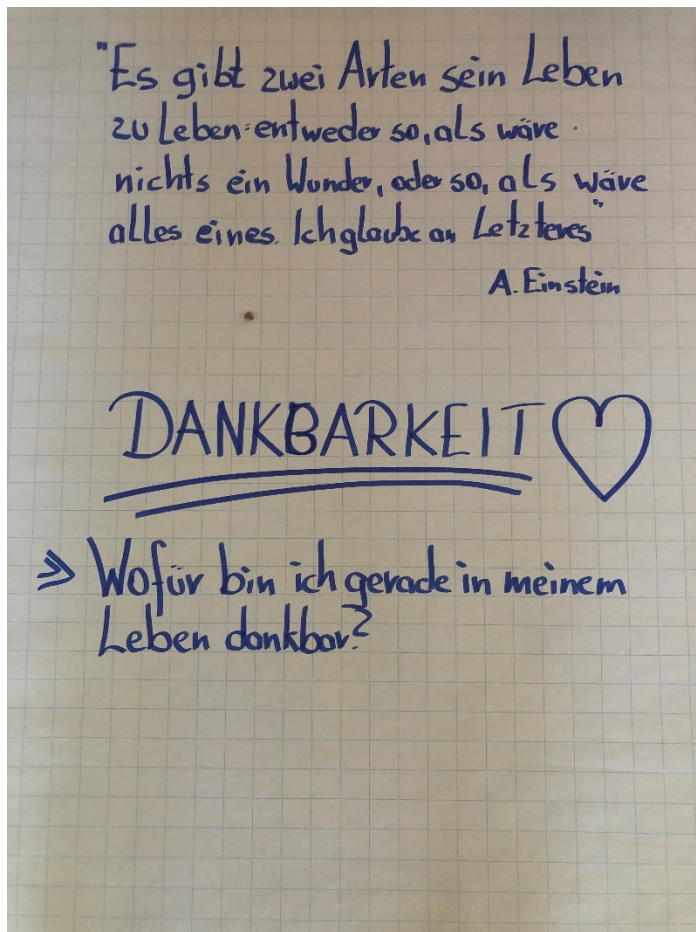 "Es gibt zwei Arten sein Leben
zu Leben: entweder so, als wäre
nichts ein Wunder, oder so, als wäre
alles eines. Ich glaube an Letzteres"
A. Einstein
DANKBARKEIT
» Wofür bin ich gerade in meinem
Leben dankbar?